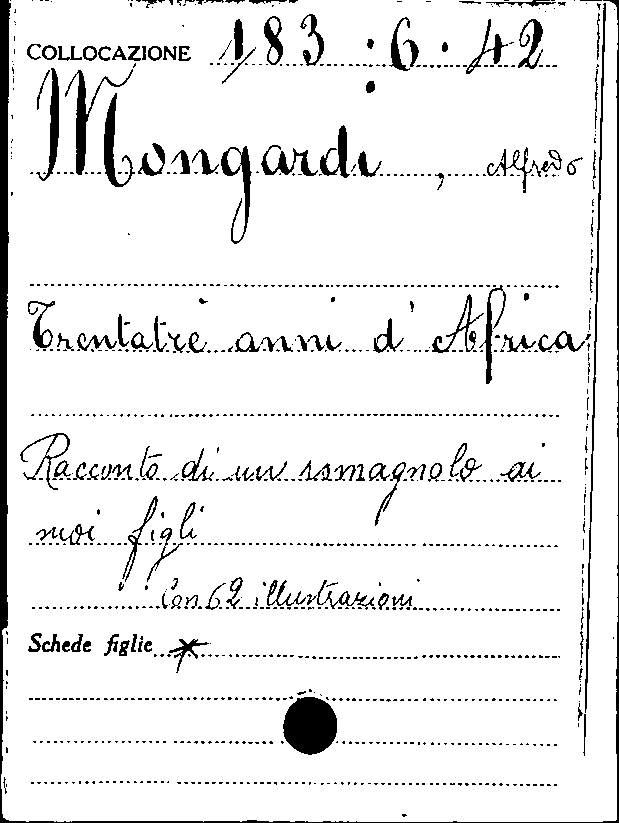 COLLOCAZIONE 183.6.42
Mongardi, Alfredo
Trentatrè anni d'Africa
Racconto di un romagnolo ai
suoi figli
Con 62 illustrazioni
Schede figlie *